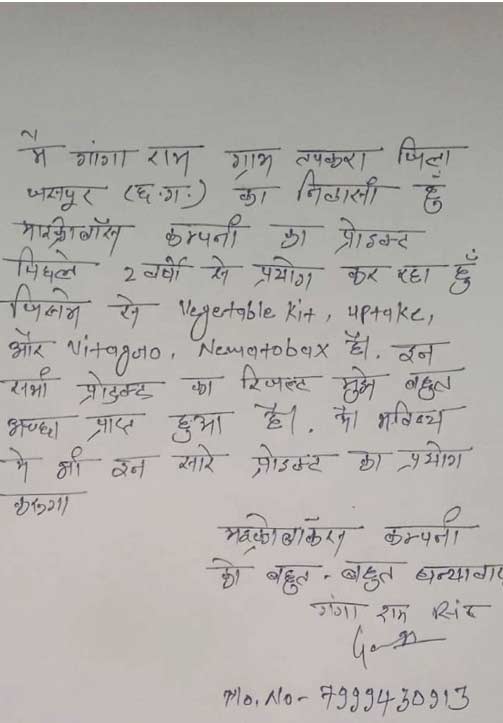 मै गांगा राम ग्राम तपकरा जिला
जसपुर (छ.ग.) का निवासी हुँ
माइक्रोबॉक्स कम्पनी का प्रोडक्ट
पिछले 2 वर्षो से प्रयोग कर रहा हुँ
जिसमे से Vegetable Kit, uptake,
और Vitagro, Nematobax है। इन
सभी प्रोडक्ट का रिजल्ट मुझे बहुत
अच्छा प्राप्त हुआ है। मै भविष्य
मे भी इन सारे प्रोडक्ट का प्रयोग
करुगा
माइक्रोबॉक्स कम्पनी
को बहुत - बहुत धन्यावाद
गंगा राम सिंह
Mo. No - 7999430913